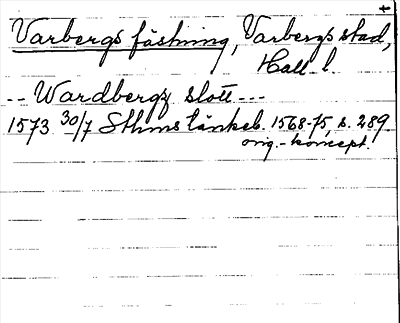 Varbergs fästning, Varbergs stad,
Hall. l.
-- Wardbergz slott ---
1573 30/7 Sthms tänkeb. 1568-75, s. 289
orig.-koncept.